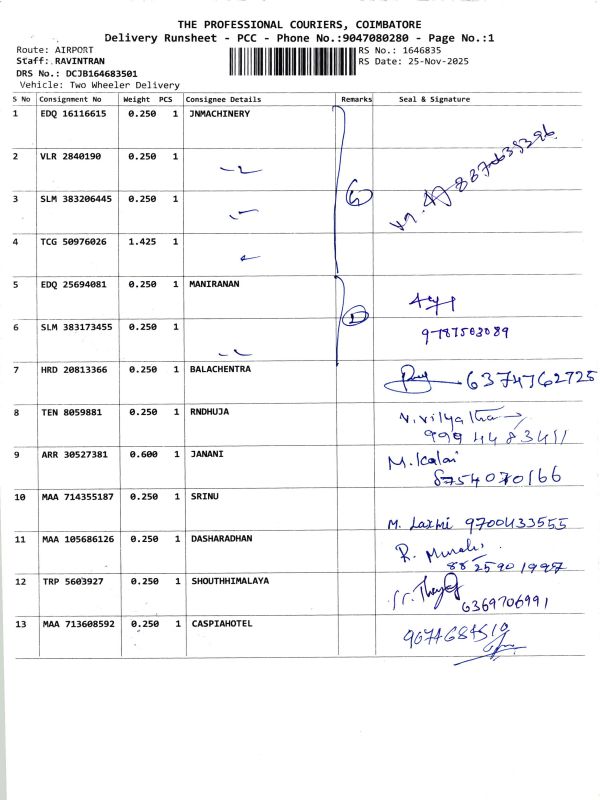 THE PROFESSIONAL COURIERS, COIMBATORE
Delivery Runsheet - PCC - Phone No.:9047080280 - Page No.:1
Route: AIRPORT RS No.: 1646835
Staff: RAVINTRAN RS Date: 25-Nov-2025
DRS No.: DCJB164683501
Vehicle: Two Wheeler Delivery
S No Consignment No Weight PCS Consignee Details Remarks Seal & Signature
1 EDQ 16116615 0.250 1 JNMACHINERY
2 VLR 2840190 0.250 1
3 SLM 383206445 0.250 1
4 TCG 50976026 1.425 1
5 EDQ 25694081 0.250 1 MANIRANAN
6 SLM 383173455 0.250 1 9787503089
7 HRD 20813366 0.250 1 BALACHENTRA 6374762725
8 TEN 8059881 0.250 1 RNDHUJA
9994483411
9 ARR 30527381 0.600 1 JANANI M. Kalai
8754070166
10 MAA 714355187 0.250 1 SRINU
M. Laxmi 9700433555
11 MAA 105686126 0.250 1 DASHARADHAN R. Murali
8825901997
12 TRP 5603927 0.250 1 SHOUTHHIMALAYA
6369706991
13 MAA 713608592 0.250 1 CASPIAHOTEL